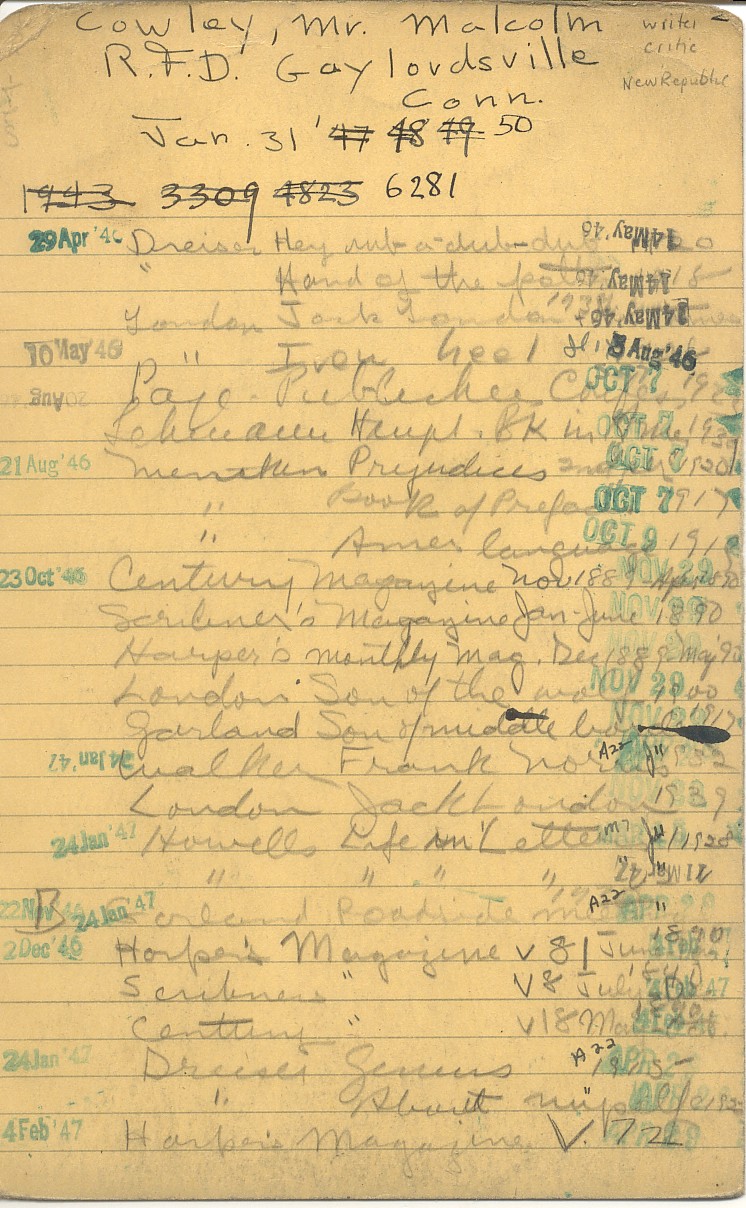 Cowley, Mr. Malcolm writer
R.F.D. Gaylordsville critic
Conn. New Republic
Jan. 31 '47 48 49 50
1943 3309 4823 6281
29 Apr '46 Dreiser Hey rub-a-dub-dub 14 May '46
" Hand of the potter 14 May '46
London Jack London 14 May '46
10 May '46 " Iron heel 5 Aug '46
20 Aug Page. Publisher OCT 7
Lehmann Haupt. Bk in OCT 7
21 Aug '46 Mencken Prejudices 2nd OCT 7 1920
" Book of Prefaces OCT 7 1917
" Amer language OCT 9 191
23 Oct '46 Century Magazine Nov 1889 Apr '90 NOV 29
Scribner's Magazine Jan-June 1890 NOV 29
Harper's monthly Mag. Dec 1889-May '90 NOV 29
London Son of the wolf 1900 NOV 29
Garland Son of middle border 1917 NOV 29
24 Jan '47 Walker Frank Norris A22 " 1932
London Jack London 1939
24 Jan '47 Howells Life in Letters M7 1928
" " " " 11 Mar '47
22 Nov '46 B 24 Jan '47 Garland Roadside A22 " APR 28
2 Dec '46 Harper's Magazine v 81 June 1890 4 Feb
Scribners " V8 July 4 Feb '47
Century " v18 4 Feb
24 Jan '47 Dreiser Genius A22 1915 APR 2
" About "
4 Feb '47 Harper's Magazine V. 722